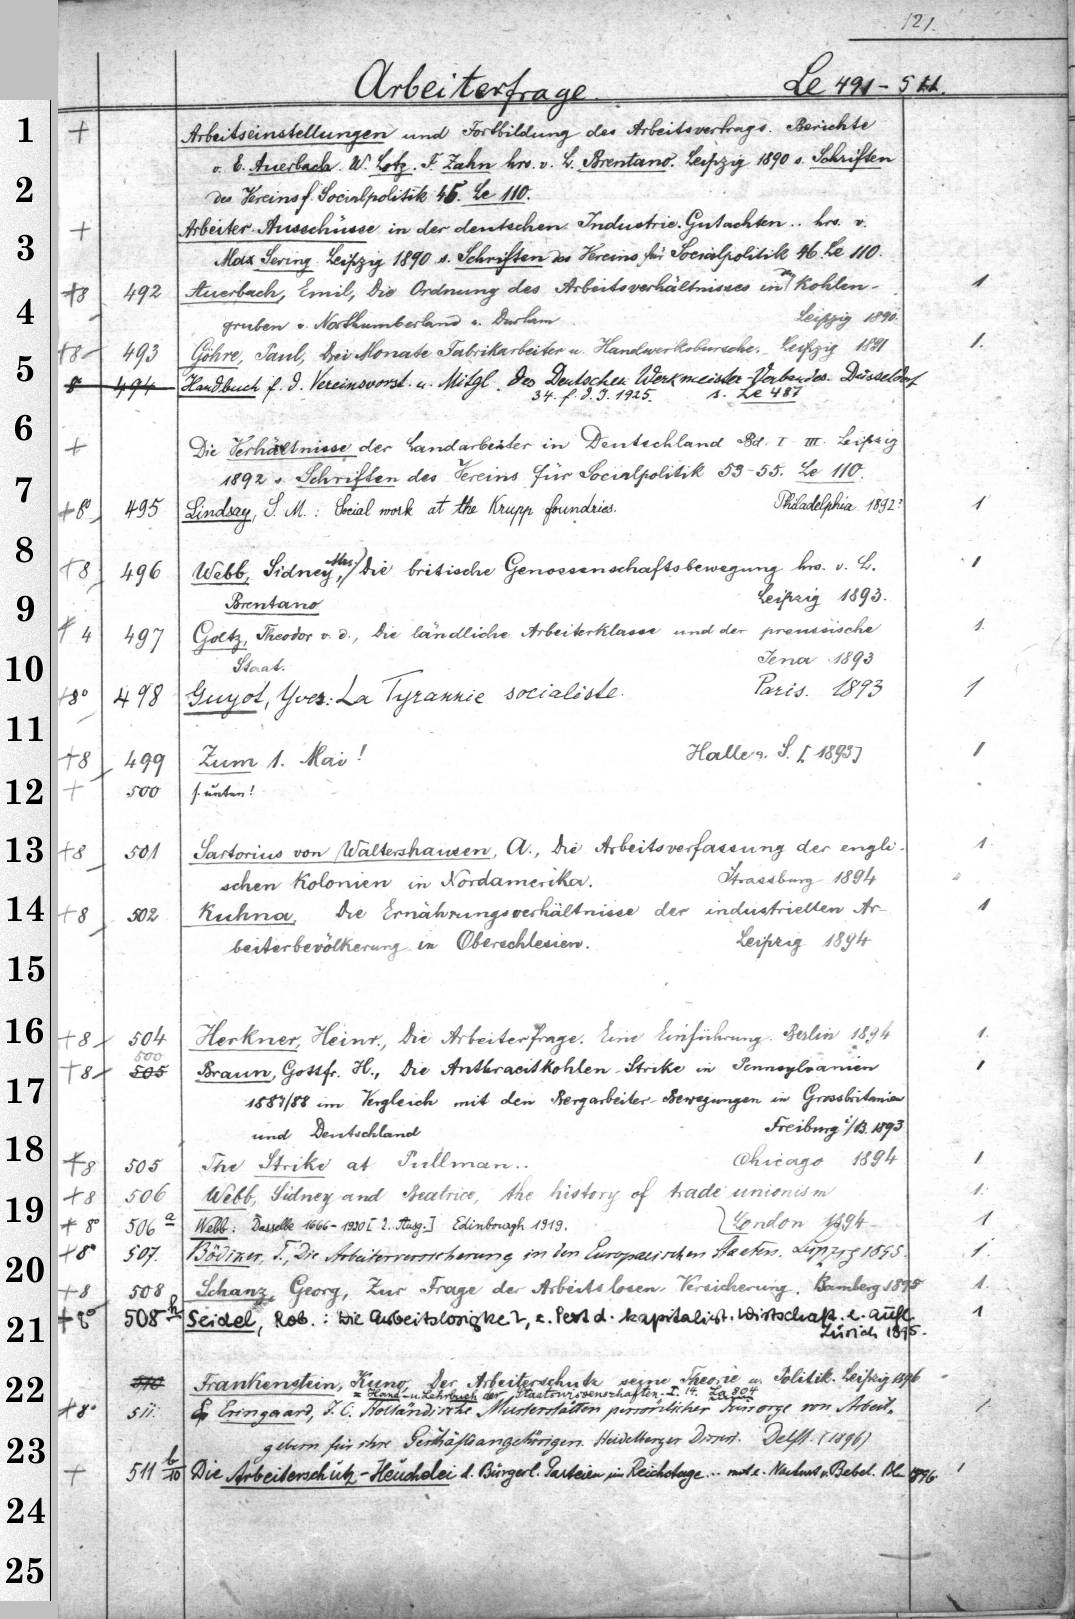 121.
Arbeiterfrage. Le 491-511.
1 + Arbeitseinstellungen und Fortbildung des Arbeitsvertrags. Berichte
v. E. Auerbach. W. Lotz. F. Zahn hrs. v. L. Brentano. Leipzig 1890 s. Schriften
2 des Vereins f. Socialpolitik 45. Le 110.
3 + Arbeiter-Ausschüsse in der deutschen Industrie. Gutachten .. hrs. v.
Max Sering. Leipzig 1890 s. Schriften des Vereins für Socialpolitik 46. Le 110.
+8 492 Auerbach, Emil, Die Ordnung des Arbeitsverhältnisses in den Kohlen- 1
4 gruben v. Northumberland u. Durham Leipzig 1890.
+8 493 Göhre, Paul, Drei Monate Fabrikarbeiter u. Handwerksbursche. Leipzig 1891 1.
5 8° 494 Handbuch f. d. Vereinsvorst. u. Mitgl. des Deutschen Werkmeister-Verbandes. Düsseldorf
34. f. d. J. 1925. s. Le 487
6 + Die Verhältnisse der Landarbeiter in Deutschland Bd. I-III. Leipzig
7 1892 s. Schriften des Vereins für Socialpolitik 53-55. Le 110.
+8° 495 Lindsay, S. M.: Social work at the Krupp foundries. Philadelphia 1892? 1
8 +8 496 Webb, Sidney (Mrs.), Die britische Genossenschaftsbewegung hrs. v. L. 1
9 Brentano Leipzig 1893.
+ 4 497 Goltz, Theodor v. d., Die ländliche Arbeiterklasse und der preussische 1.
10 Staat. Jena 1893
+8° 498 Guyot, Yves: La Tyrannie socialiste. Paris. 1893 1
11
+8 499 Zum 1. Mai! Halle a. S. [1893] 1
12 + 500 s. unten!
13 +8 501 Sartorius von Waltershausen, A., Die Arbeitsverfassung der engli- 1
schen Kolonien in Nordamerika. Strassburg 1894
14 +8 502 Kuhna, Die Ernährungsverhältnisse der industriellen Ar- 1
beiterbevölkerung in Oberschlesien. Leipzig 1894
15
16 +8 504 Herkner, Heinr., Die Arbeiterfrage. Eine Einführung. Berlin 1894 1.
500
+8 505 Braun, Gottfr. H., Die Anthracitkohlen-Strike in Pennsylvanien 1
17 1887/88 im Vergleich mit den Bergarbeiter-Bewegungen in Grossbritanien
und Deutschland Freiburg i/B. 1893
18 +8 505 The Strike at Pullman.. Chicago 1894 1
19 +8 506 Webb, Sidney and Beatrice, the history of trade unionism 1.
+ 8° 506a Webb: Dasselbe 1666-1920 [2. Ausg.] Edinbourgh 1919. London 1894 1
20 +8° 507. Bödiker, T., Die Arbeiterversicherung in den Europaeischen Staaten. Leipzig 1895. 1.
+8 508 Schanz, Georg, Zur Frage der Arbeitslosen-Versicherung. Bamberg 1895 1.
21 +8° 508 h Seidel, Rob.: Die Arbeitslosigkeit, e. Pest d. kapitalist. Wirtschaft. 2. Aufl. 1
Zürich 1895.
22 510 Frankenstein, Kuno, Der Arbeiterschutz seine Theorie u. Politik. Leipzig 1896
= Hand- u. Lehrbuch der Staatswissenschaften. I. 14. La 804
+8° 511. Eringaard, J. C. Holländische Musterstätten persönlicher Fürsorge von Arbeit- 1
23 gebern für ihre Geschäftsangehörigen. Heidelberger Dissert. Delft. (1896)
+ 511 b/10 Die Arbeiterschutz-Heuchelei d. Bürgerl. Parteien im Reichstage .. mit e. Nachwort v. Bebel. Bln 1896 1
24
25